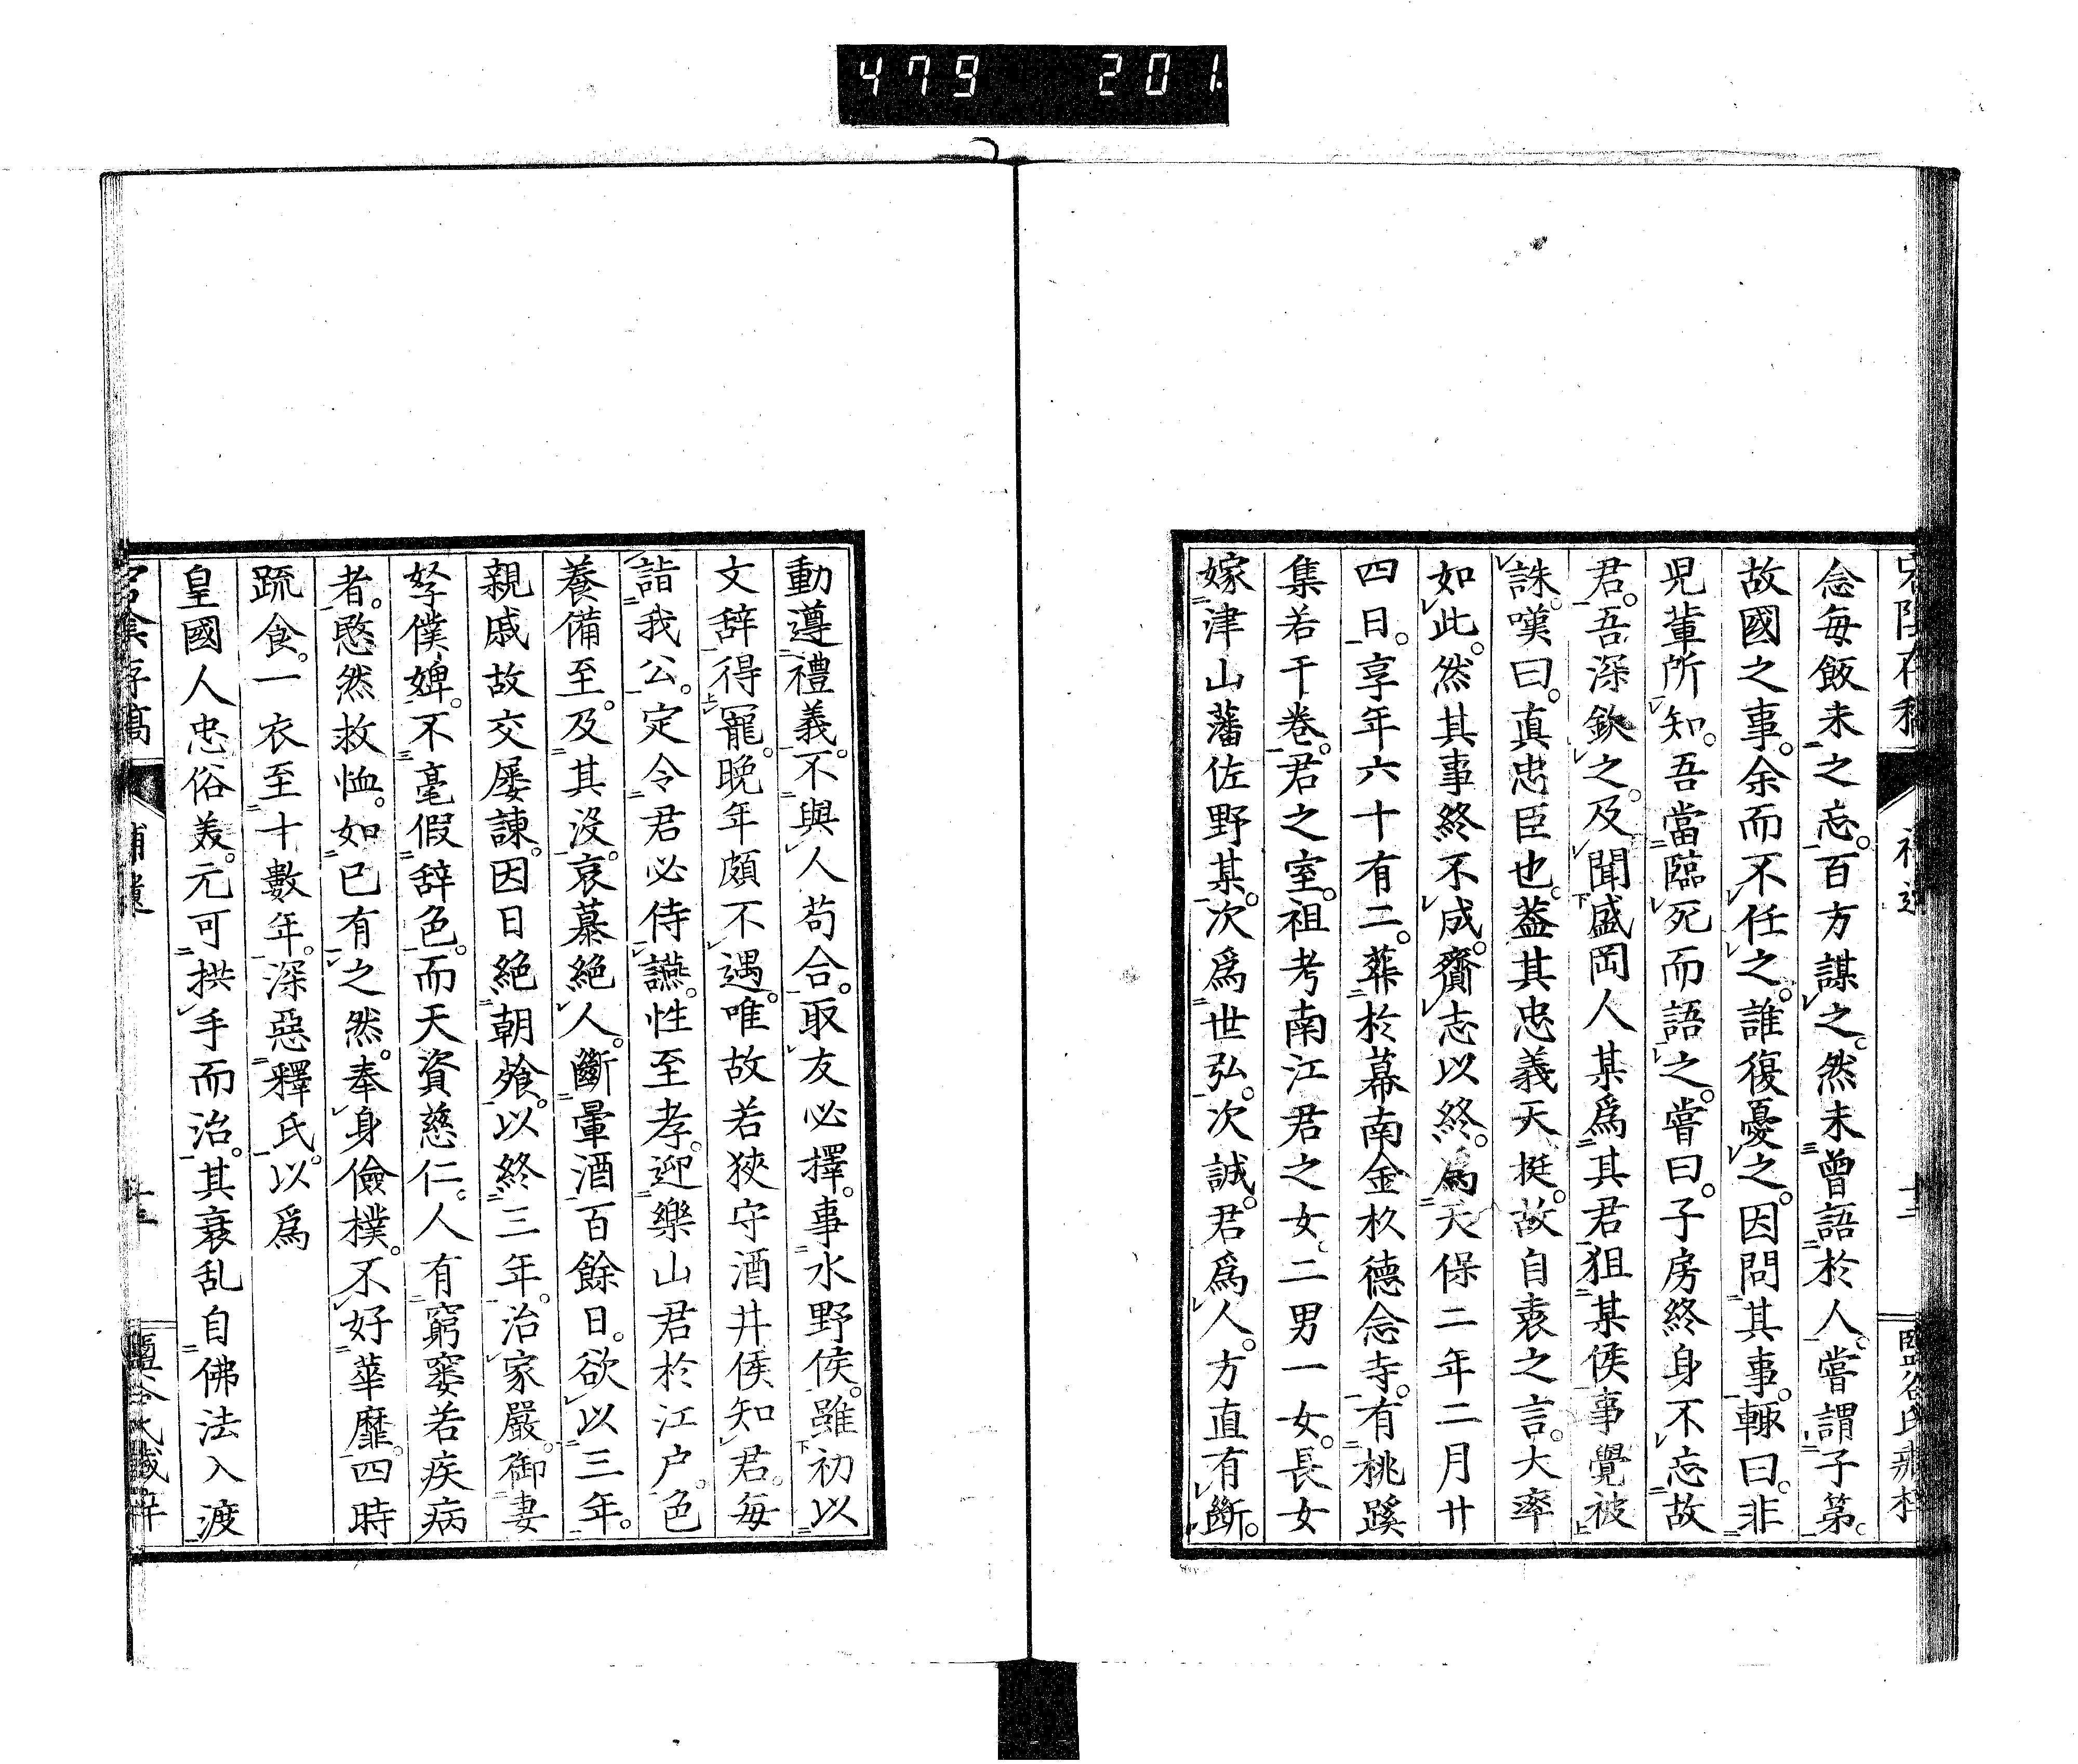 479 201
念每飯未之忘。百方謀之。然未曾語於人。嘗謂子第。
故國之事。余而不任之。誰復憂之。因問其事。輙曰。非
児輩所知。吾當臨死而語之。嘗曰。子房終身不忘故
君。吾深欽之。及聞盛岡人某爲其君狙某侯事覺被
誅。嘆曰。真忠臣也。葢其忠義天挺。故自衷之言。大率
如此。然其事終不成。齎志以終。爲天保二年二月廿
四日。享年六十有二。葬於幕南金杦德念寺。有桃蹊
集若干卷。君之室。祖考南江君之女。二男一女。長女
嫁津山藩佐野某。次爲世弘。次誠。君爲人。方直有斷。
動遵禮義。不與人苟合。取友必擇。事水野侯。雖初以
文辞得寵。晩年頗不遇。唯故若狹守酒井侯知君。每
詣我公。定令君必侍讌。性至孝。迎樂山君於江户。色
養備至。及其没。哀慕絶人。斷暈酒百餘日。欲以三年。
親戚故交屡諌。因日絶朝飱。以終三年。治家嚴。御妻
孥僕婢。不毫假辞色。而天資慈仁。人有窮窶若疾病
者。愍然救恤。如已有之然。奉身儉樸。不好華靡。四時
䟽食。一衣至十數年。深惡釋氏。以爲
皇國人忠俗美。元可拱手而治。其衰乱自佛法入渡
存稾
補遺